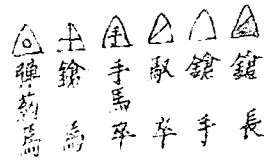 鎗長
鎗手
馭卒
手馬卒
鎗馬
彈葯馬